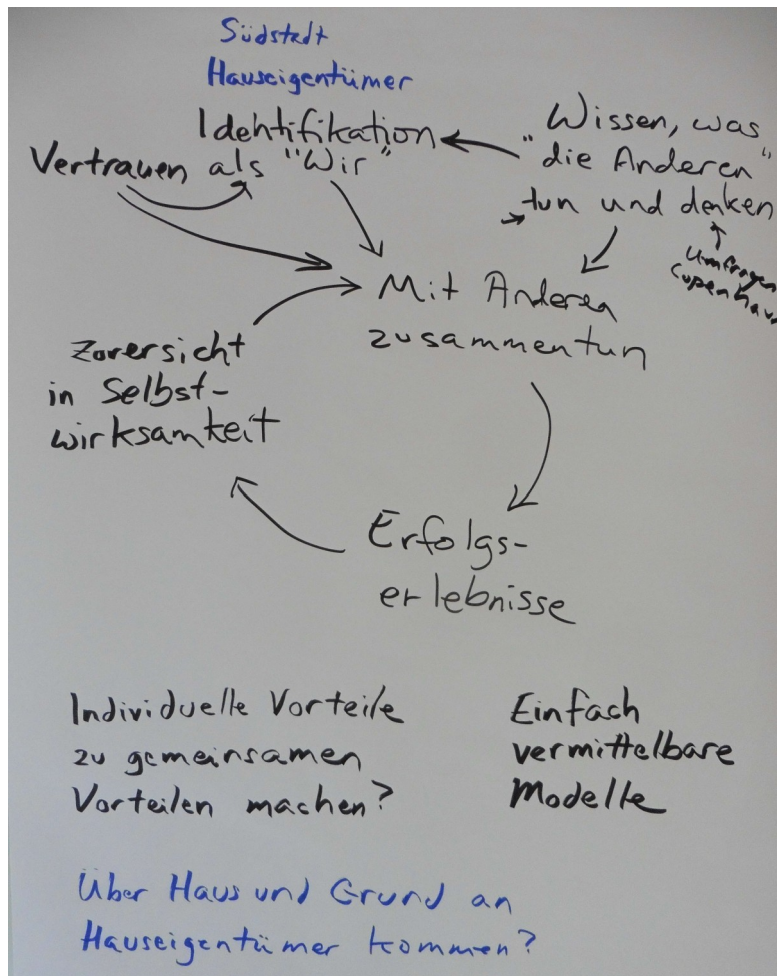 Südstedt
Hauseigentümer
Identifikation
als "Wir"
Vertrauen
"Wissen, was
die Anderen"
tun und denken
Umfragen
Mit Anderen
zusammentun
Zuversicht
in Selbst-
wirksamkeit
Erfolgs-
erlebnisse
Individuelle Vorteile
zu gemeinsamen
Vorteilen machen?
Einfach
vermittelbare
Modelle
Über Haus und Grund an
Hauseigentümer kommen?